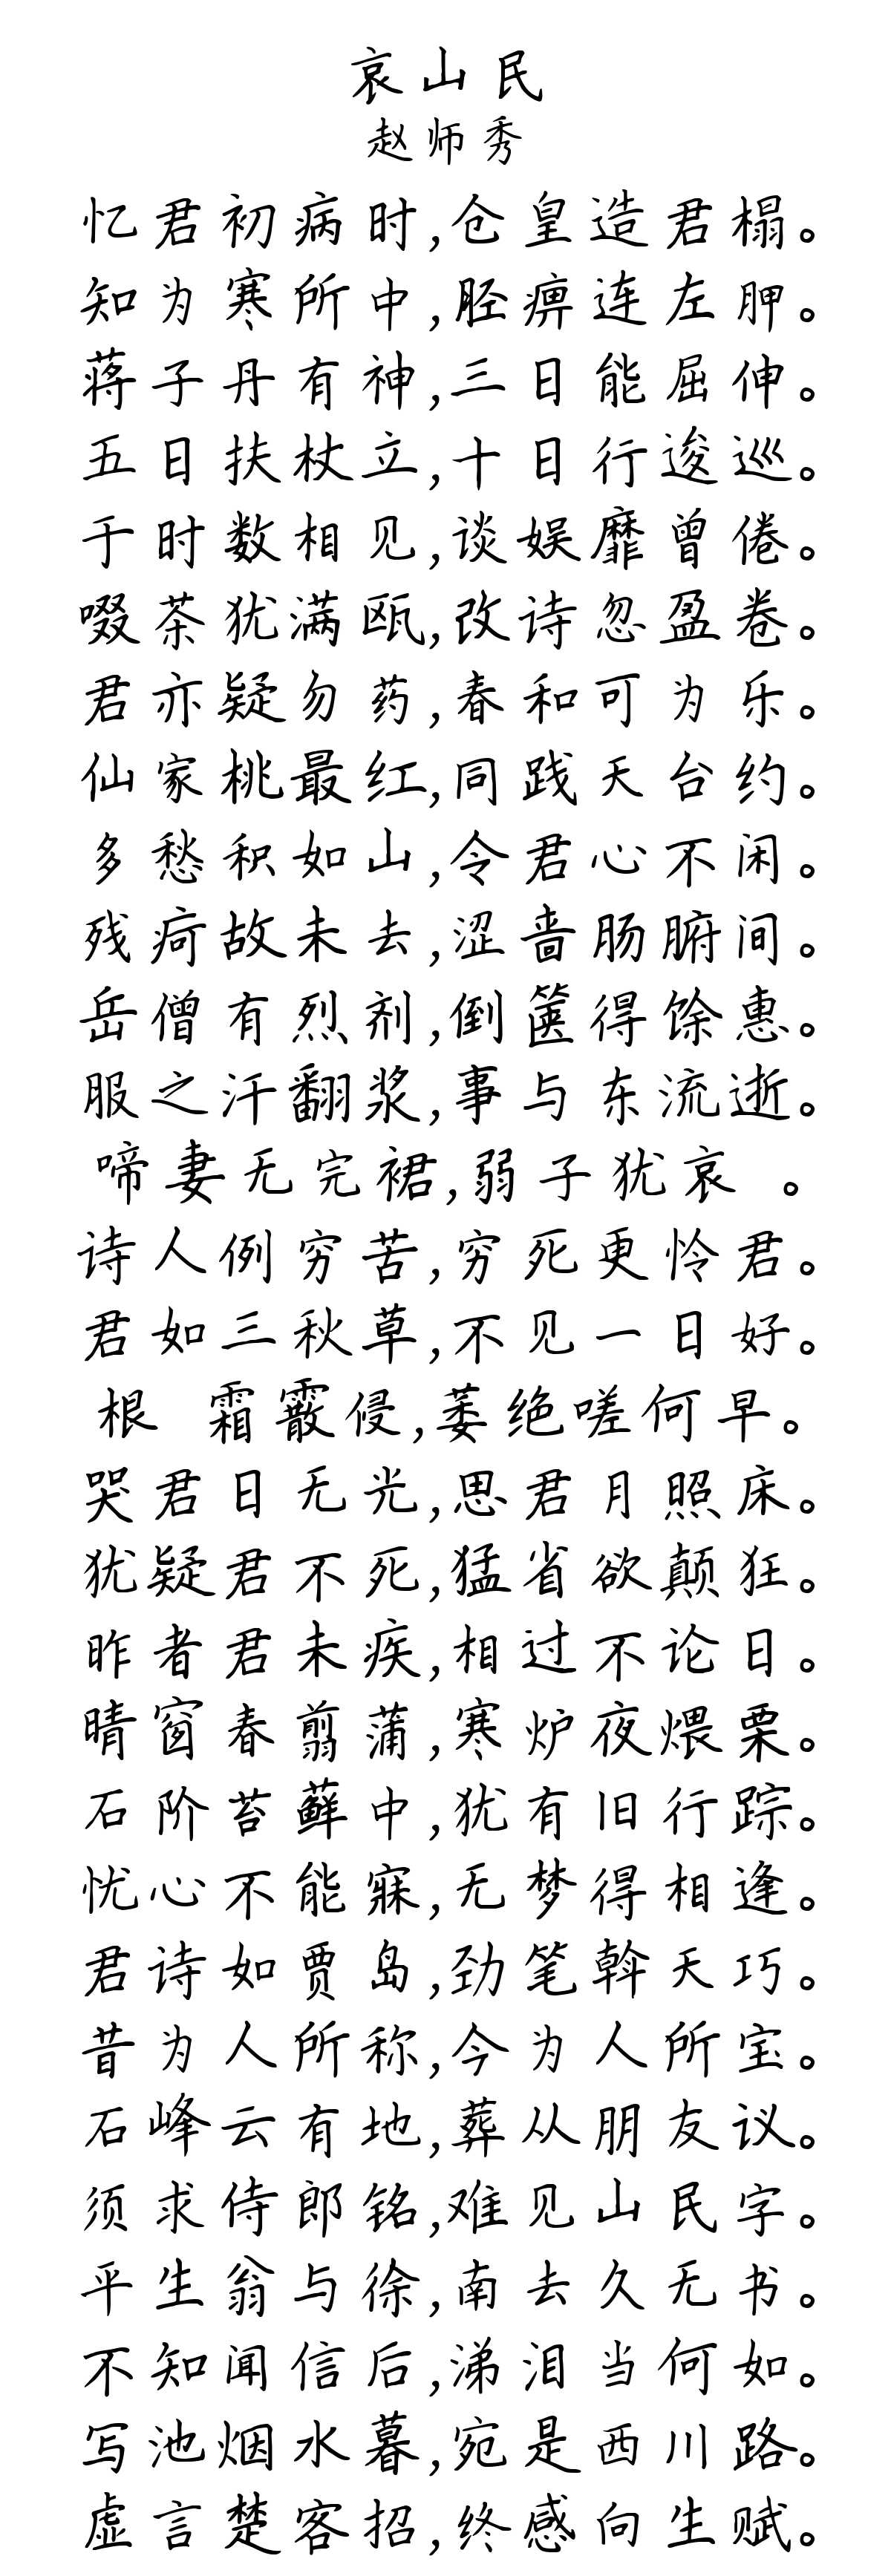 哀山民
赵师秀
忆君初病时,仓皇造君榻。
知为寒所中,胫痹连左胛。
蒋子丹有神,三日能屈伸。
五日扶杖立,十日行逡巡。
于时数相见,谈娱靡曾倦。
啜茶犹满瓯,改诗忽盈卷。
君亦疑勿药,春和可为乐。
仙家桃最红,同践天台约。
多愁积如山,令君心不闲。
残疴故未去,涩啬肠腑间。
岳僧有烈剂,倒箧得馀惠。
服之汗翻浆,事与东流逝。
啼妻无完裙,弱子犹哀 。
诗人例穷苦,穷死更怜君。
君如三秋草,不见一日好。
根 霜霰侵,萎绝嗟何早。
哭君日无光,思君月照床。
犹疑君不死,猛省欲颠狂。
昨者君未疾,相过不论日。
晴窗春翦蒲,寒炉夜煨栗。
石阶苔藓中,犹有旧行踪。
忧心不能寐,无梦得相逢。
君诗如贾岛,劲笔斡天巧。
昔为人所称,今为人所宝。
石峰云有地,葬从朋友议。
须求侍郎铭,难见山民字。
平生翁与徐,南去久无书。
不知闻信后,涕泪当何如。
写池烟水暮,宛是西川路。
虚言楚客招,终感向生赋。